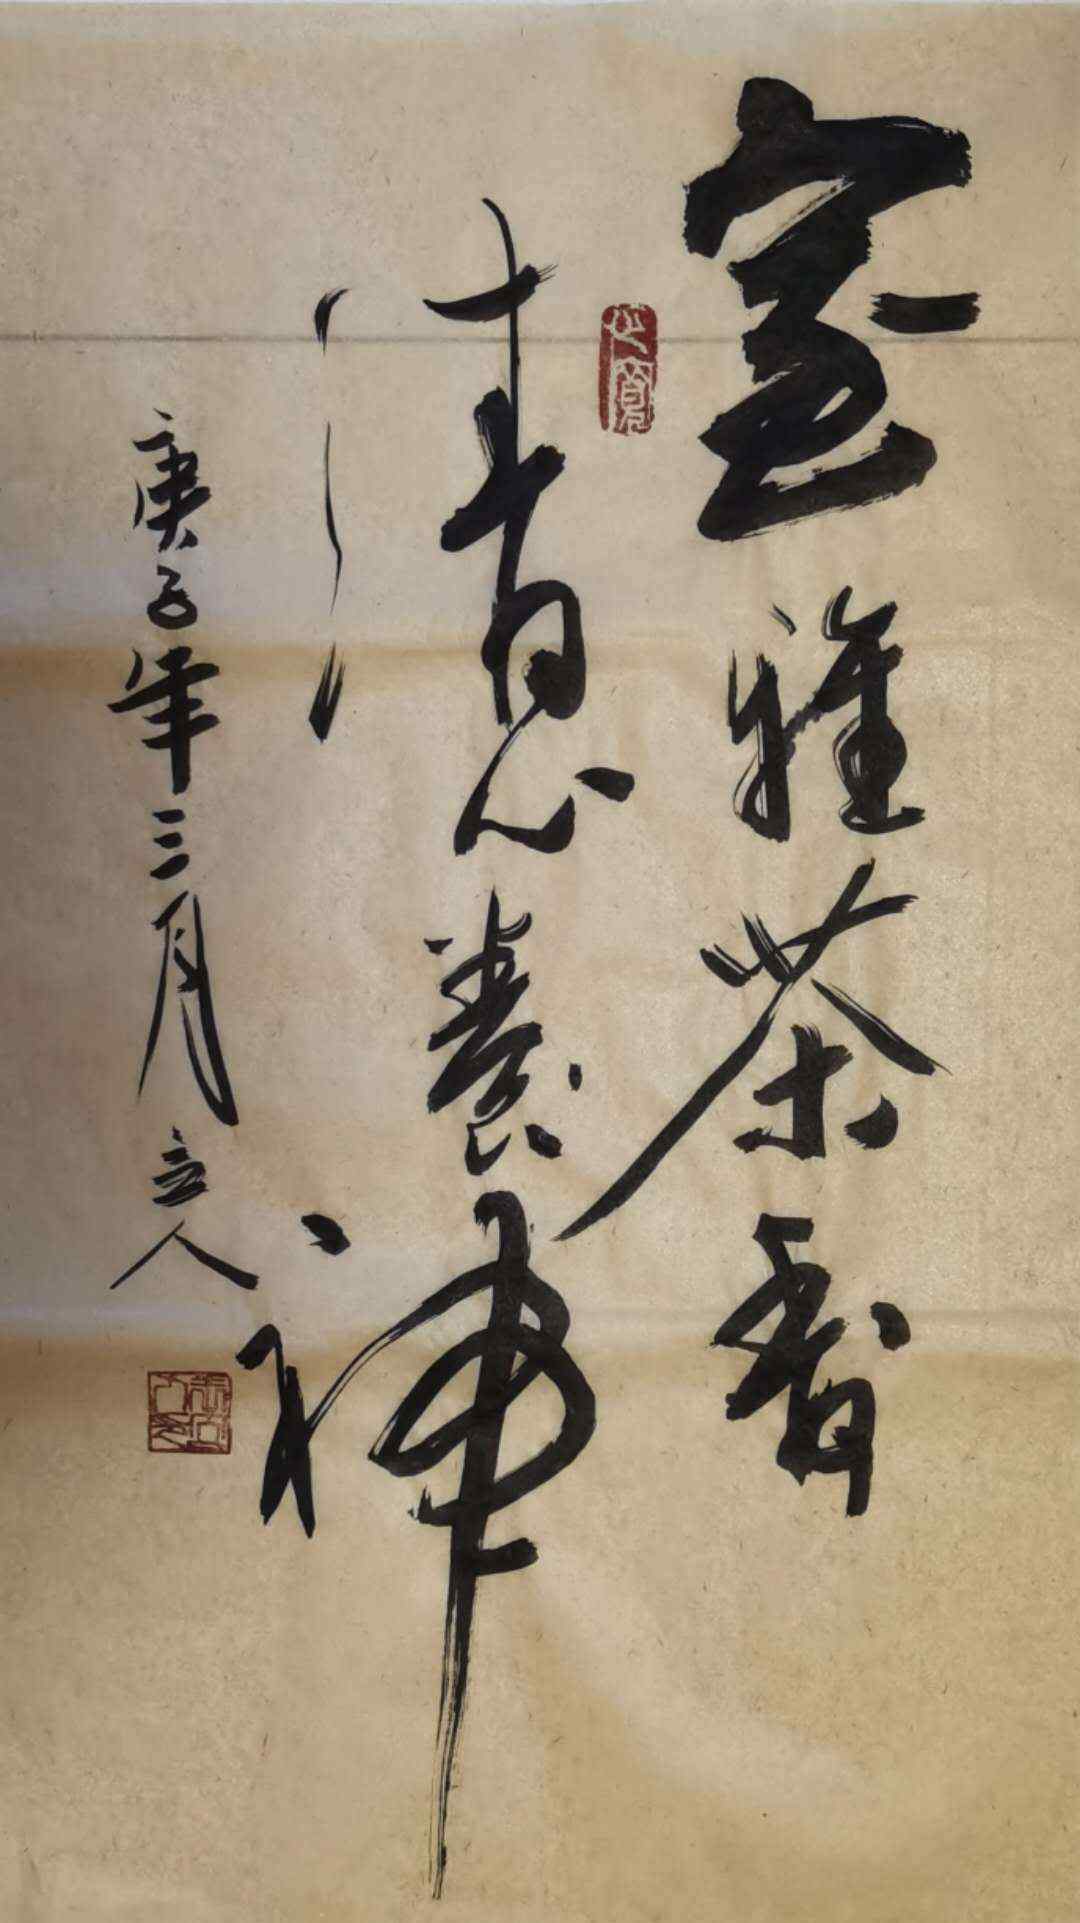 室雅茶香
清心養神
庚子年三月立人
心寬